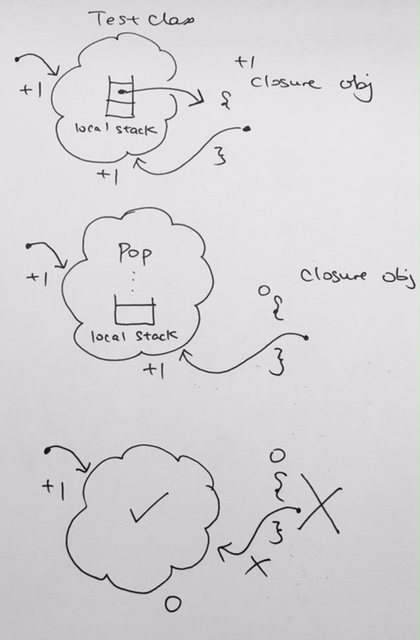 Test class
+1
+1
closure obj
{
local stack
}
+1
Pop
+1
closure obj
0
{
local stack
}
+1
0
+1
{
}
0